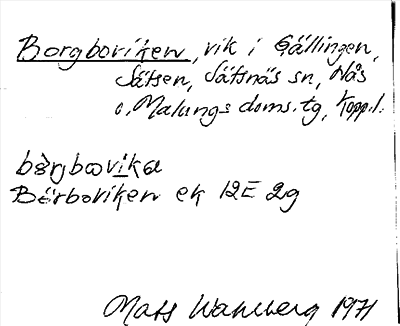 Borgboviken, vik i Gällingen,
Sätsen, Sätsnäs sn, Nås
o. Malungs doms.tg, Kopp.l.
Bärboviken ek 12E 2g
Mats Wahlberg 1971